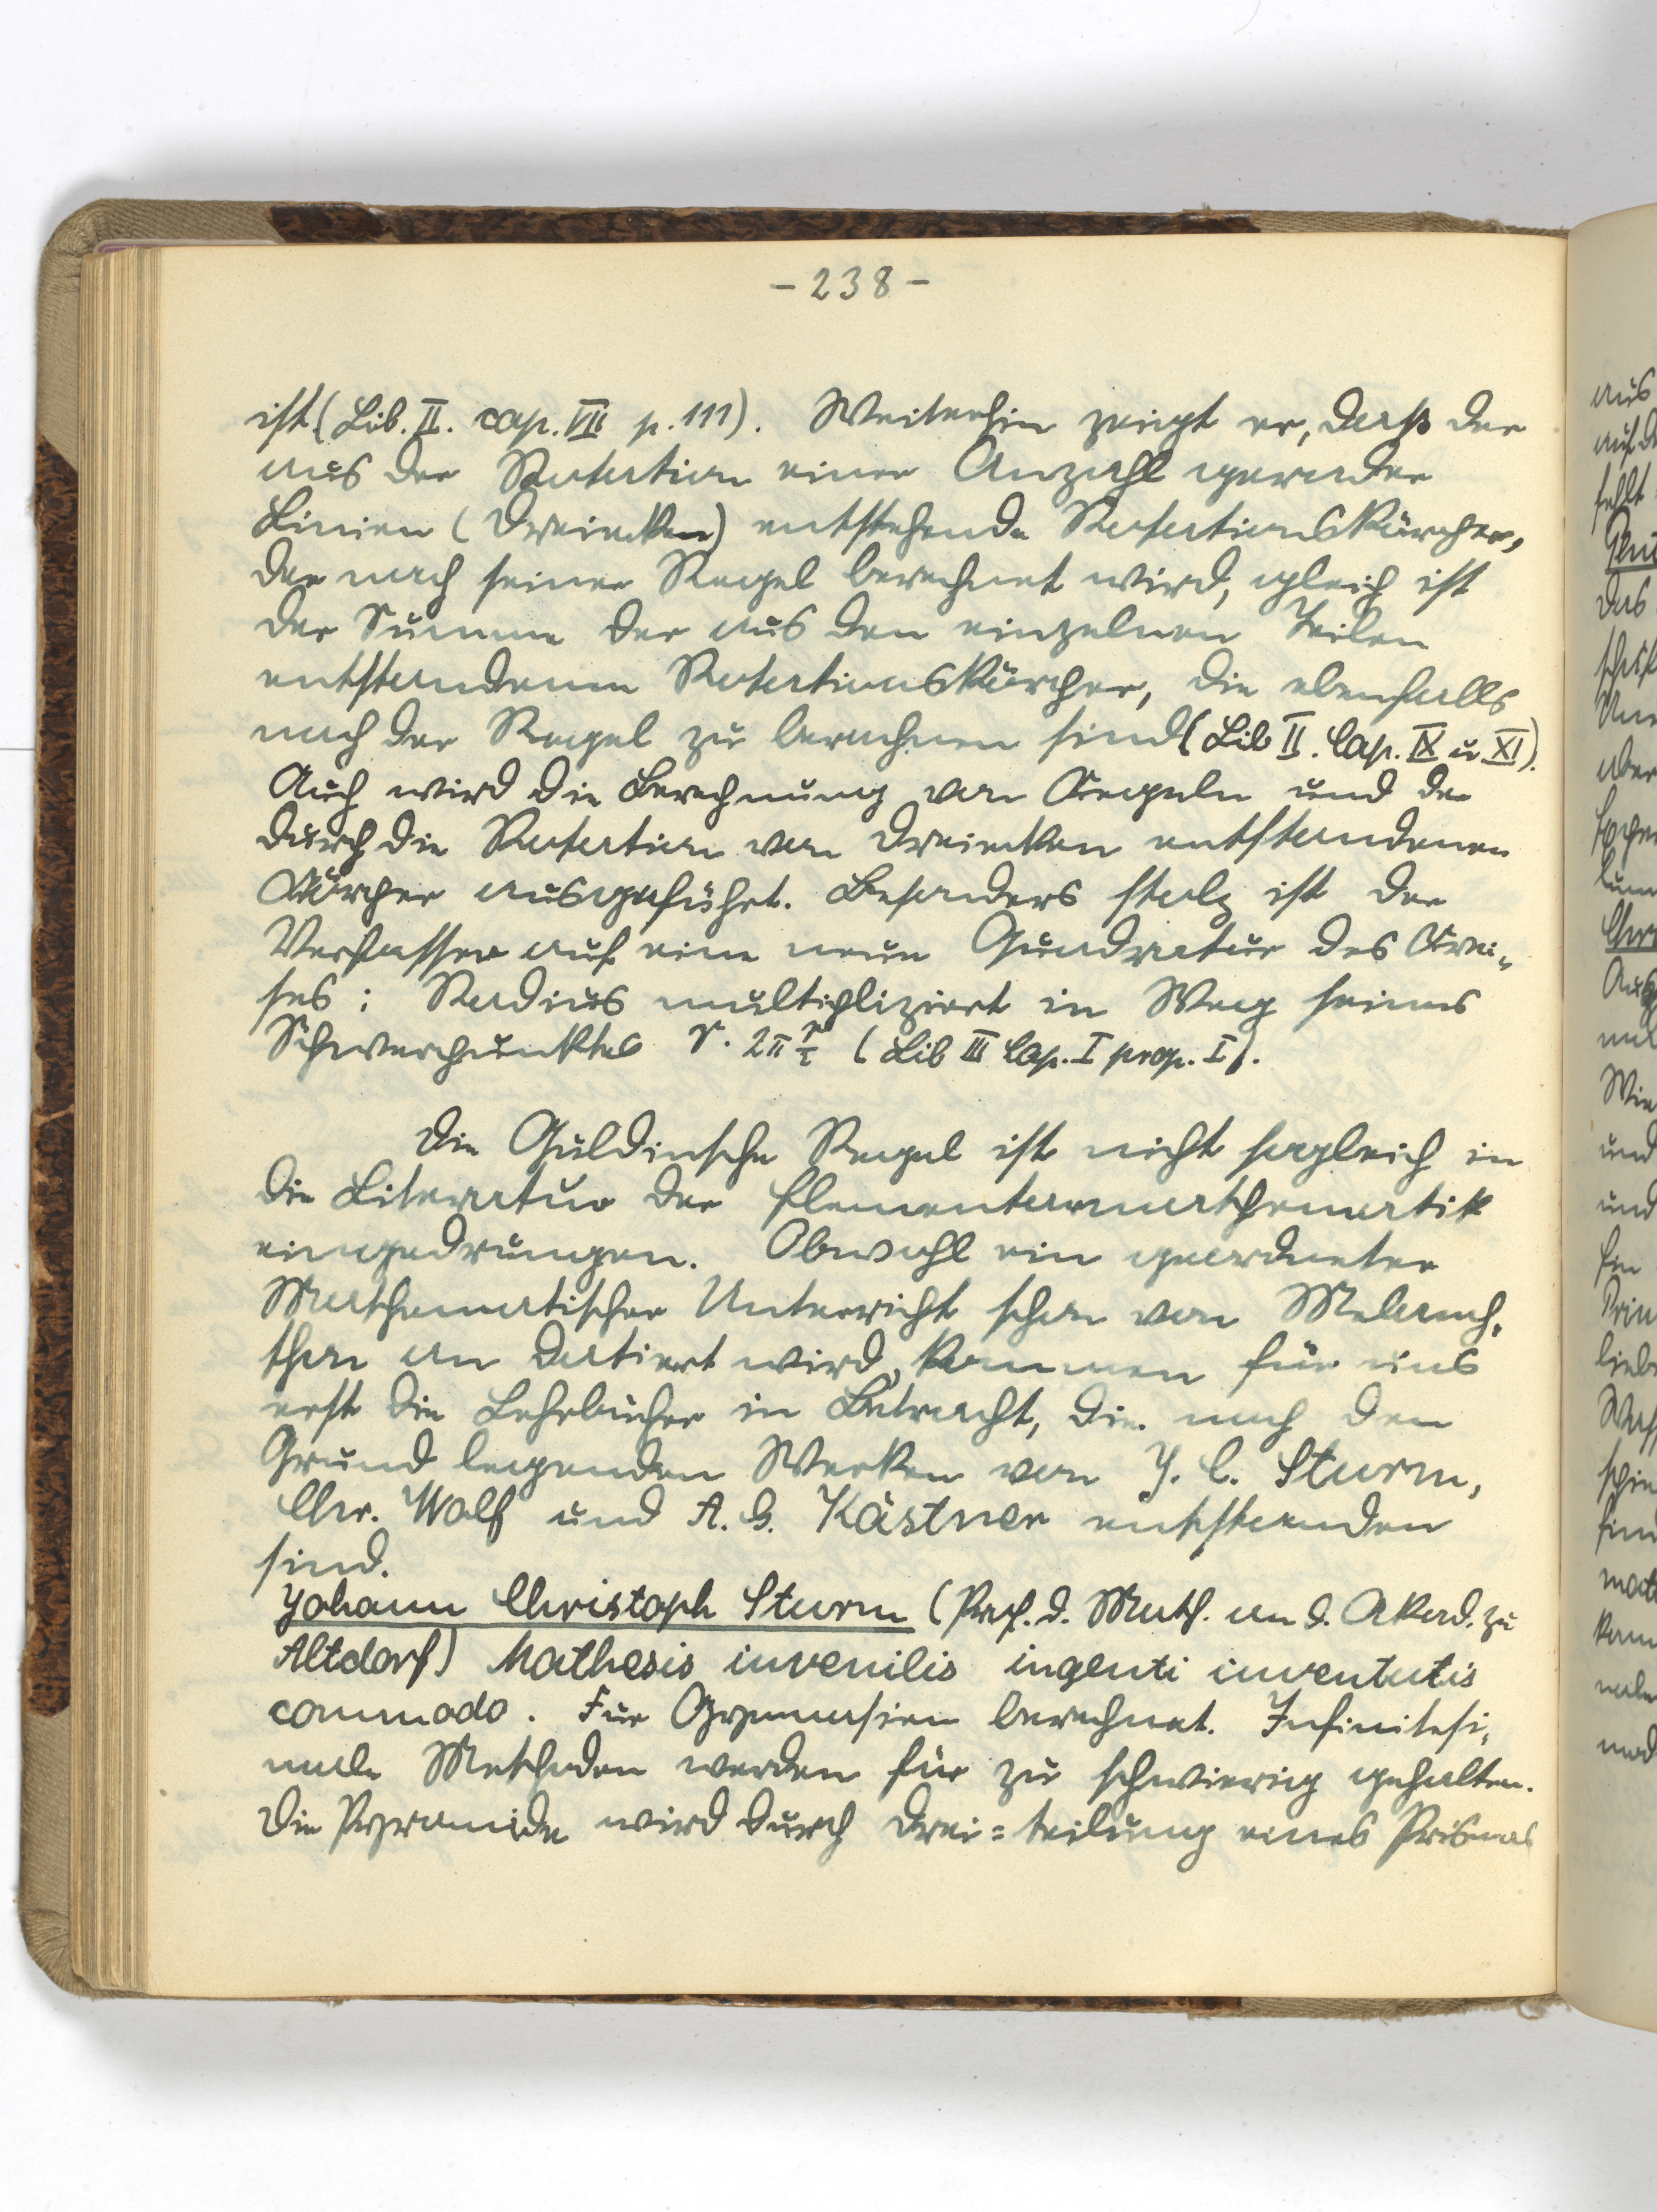 - 238 -
ist (Lib. II. cap. VIII p. 111). Weiterhin zeigt er, dass der
aus der Rotation einer Anzahl gerader
Linien (Dreiecken) entstehende Rotationskörper,
der nach seiner Regel berechnet wird, gleich ist
der Summe der aus den einzelnen Teilen
entstandenen Rotationskörper, die ebenfalls
nach der Regel zu berechnen sind (Lib II. Cap. IX u XI).
Auch wird die Berechnung von Kegeln und der
durch die Rotation von Dreiecken entstandenen
Körper ausgeführt. Besonders stolz ist der
Verfasser auf eine neue Quadratur des Krei-
ses: Radius multipliziert in Weg seines
Schwerpunktes r. 2π r/2 (Lib III Cap. I prop. I).
Die Guldinsche Regel ist nicht sogleich in
die Literatur der Elementarmathematik
eingedrungen. Obwohl ein geordneter
Mathematischer Unterricht schon von Melanch-
thon an datiert wird, kommen für uns
erst die Lehrbücher in Betracht, die nach den
Grund legenden Werken von J. C. Sturm,
Chr. Wolf und A. G. Kästner entstanden
sind.
Johann Christoph Sturm (Prof. d. Math. an d. Akad. zu
Altdorf) Mathesis iuvenilis ingenti iuventutis
commodo. Für Gymnasien berechnet. Infinitesi-
male Methoden werden für zu schwierig gehalten.
Die Pyramide wird durch Drei=teilung eines Prismas